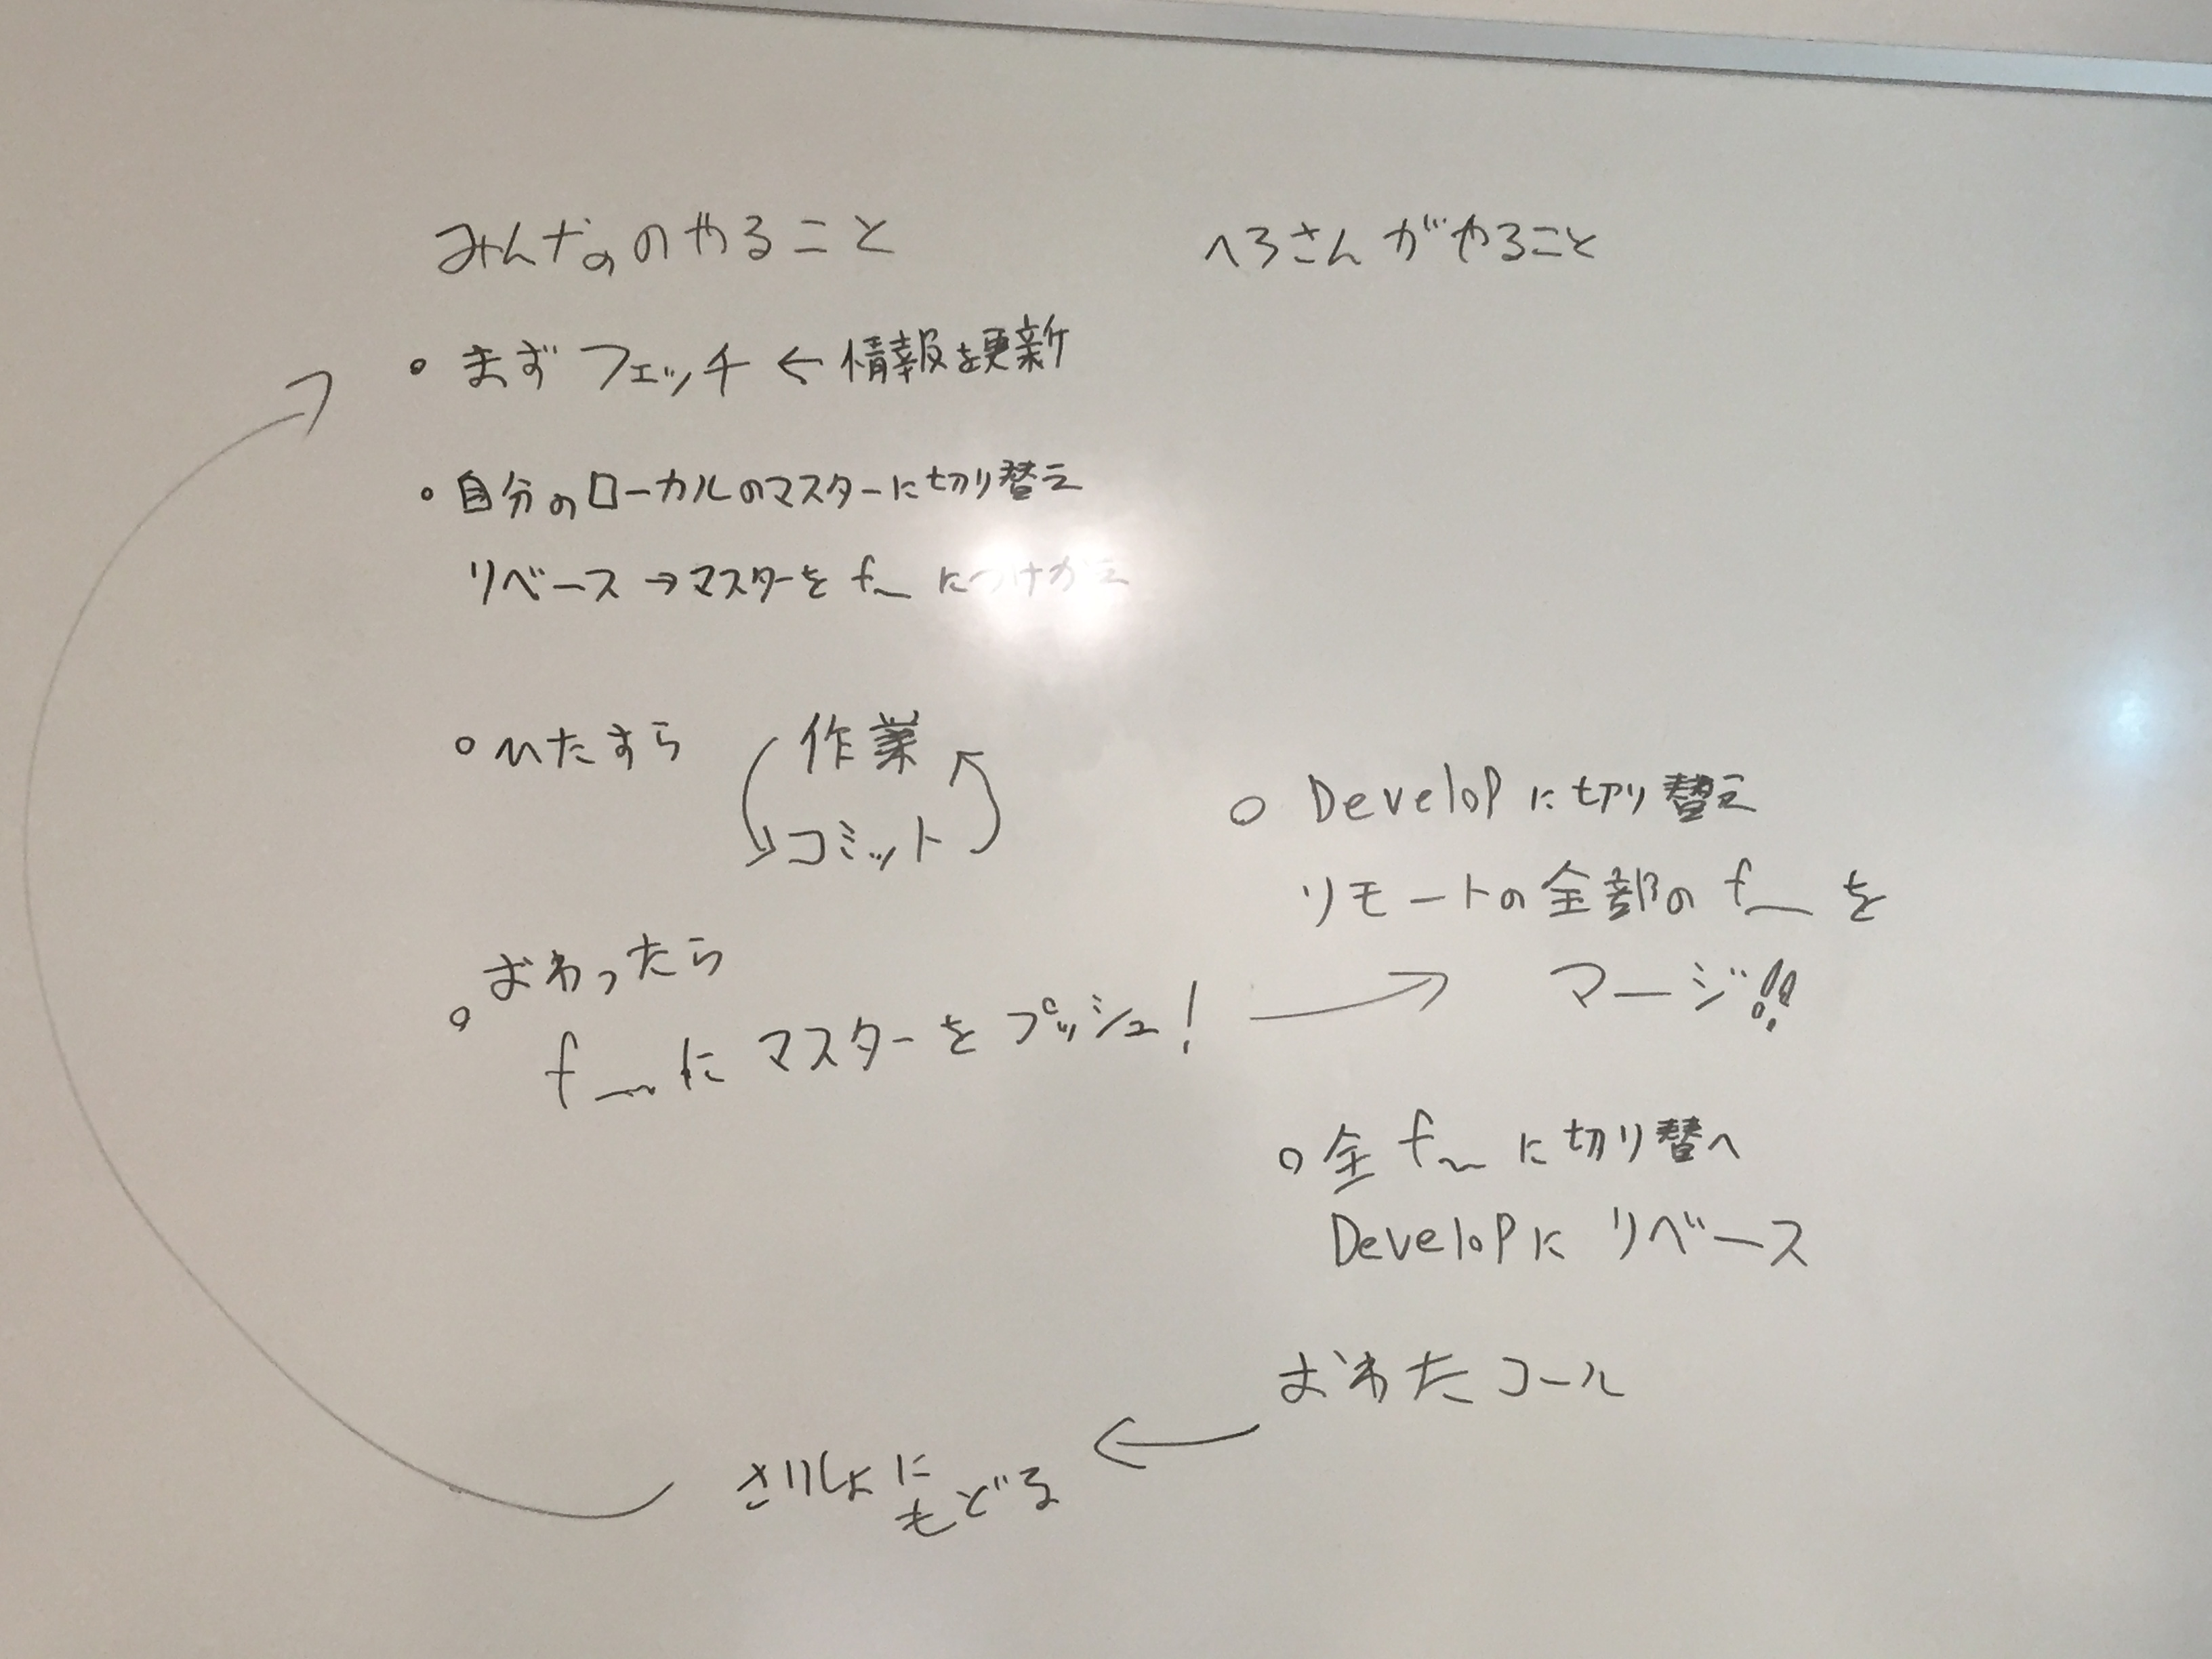 みんなのやること
・まずフェッチ ← 情報を更新
・自分のローカルのマスターに切り替え
リベース → マスターを f~ につけかえ
・ひたすら 作業
コミット
おわったら
・f~にマスターをプッシュ!
へろさんがやること
○ Developに切り替え
リモートの全部の f~ を
マージ!!
○全 f~ に切り替へ
Developに リベース
おわたコール
さいしょに
もどる